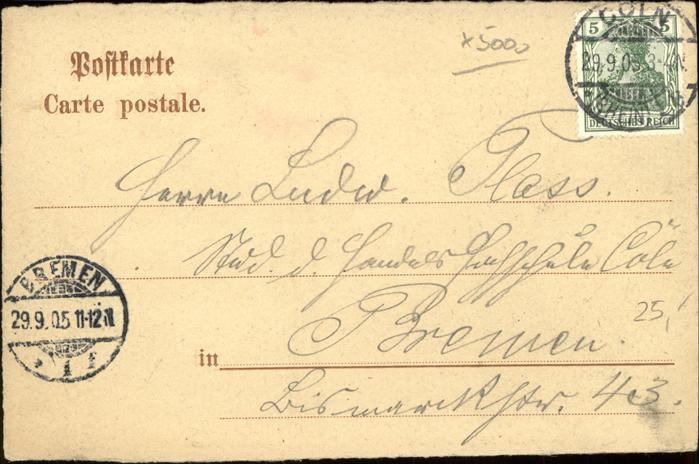 Postkarte
Carte postale.
x5000
CÖLN
5 5
29.9.05. 3-4N.
DEUTSCHES REICH
Herrn Ludw. Plass.
Stud. d. Handels Hochschule Cöln
25,
Bremen.
in
Bismarckstr. 43.
BREMEN
29.9.05 11-12N
* 1 f